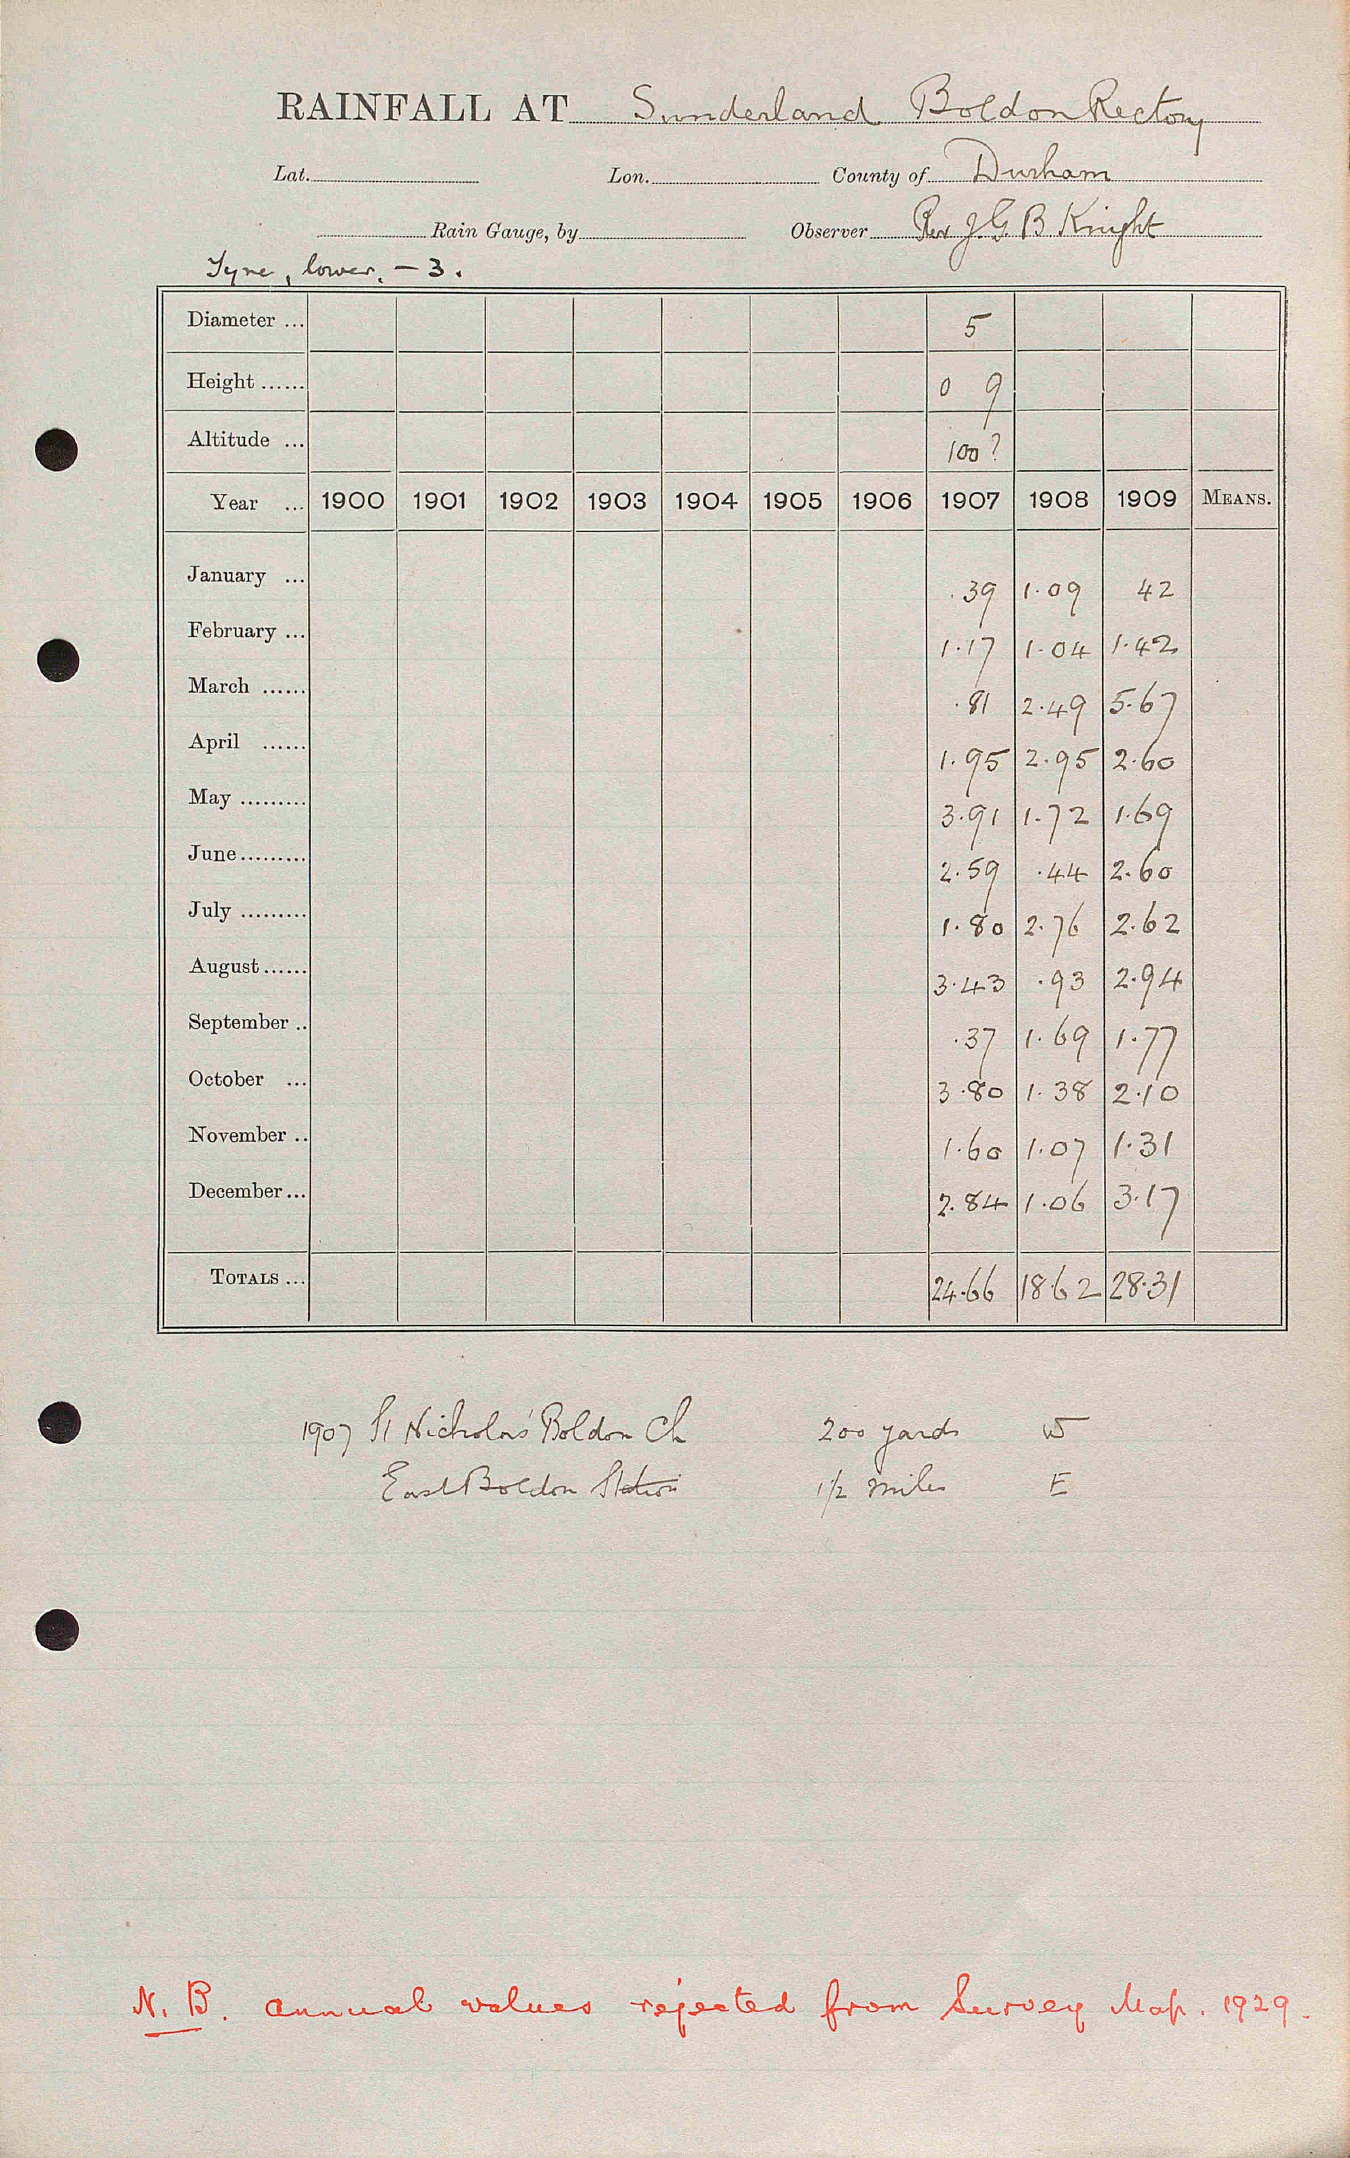 RAINFALL AT Sunderland Boldon Rectory
Lat. Lon. County of Durham
Rain Gauge, by Observer Rev J. G. B Knight
Tyne, lower, - 3.
Diameter ... 5
Height ...... 0 9
Altitude ... 100?
Year ... 1900 1901 1902 1903 1904 1905 1906 1907 1908 1909 MEANS.
January ... .39 1.09 42
February ... 1.17 1.04 1.42
March ...... .81 2.49 5.67
April ...... 1.95 2.95 2.60
May ......... 3.91 1.72 1.69
June ......... 2.59 .44 2.60
July ......... 1.80 2.76 2.62
August ...... 3.43 .93 2.94
September .. .37 1.69 1.77
October ... 3.80 1.38 2.10
November .. 1.60 1.07 1.31
December ... 2.84 1.06 3.17
TOTALS ... 24.66 18.62 28.31
1907 St Nicholas' Boldon Ch 200 yards W
East Boldon Station 1/2 miles E
N. B. annual values rejected from Survey Map. 1929.